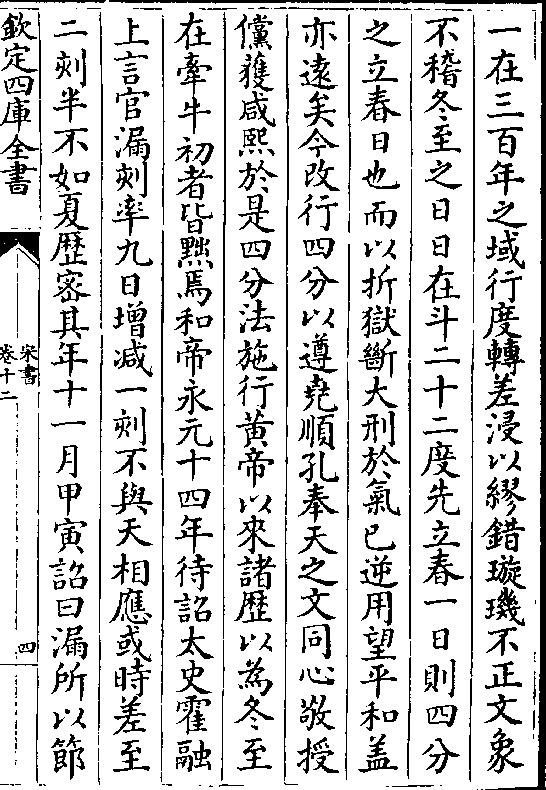 一在三百年之域行度轉差浸以繆錯璇璣不正文象
不稽冬至之日日在斗二十二度先立春一日則四分
之立春日也而以折獄斷大刑於氣已逆用望平和蓋
亦逺矣今改行四分以遵堯順孔奉天之文同心敬授
儻獲咸熙於是四分法施行黄帝以來諸歴以為冬至
在牽牛初者皆黜焉和帝永元十四年待詔太史霍融
上言官漏刻率九日增减一刻不與天相應或時差至
二刻半不如夏歴密其年十一月甲寅詔曰漏所以節
欽定四庫全書
宋書
卷十二
四